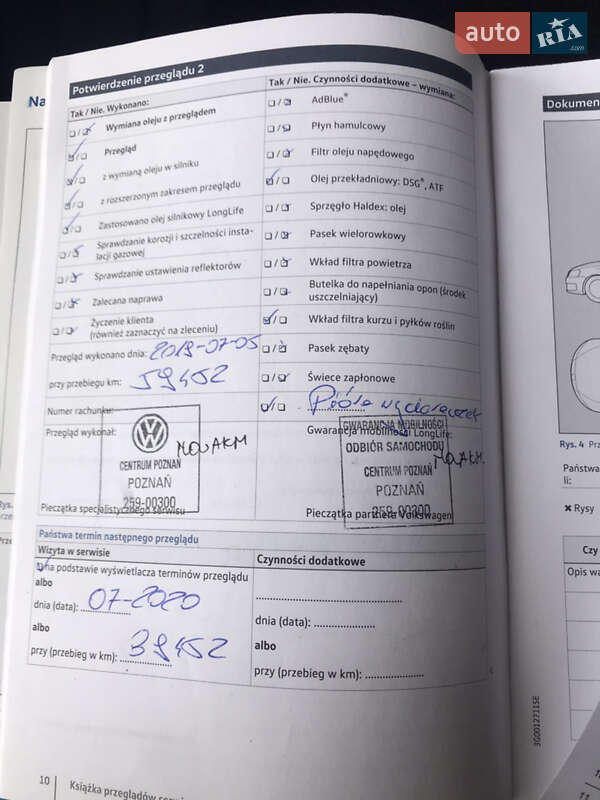 auto RIA.com
Potwierdzenie przeglądu 2
Tak / Nie. Wykonano:
Wymiana oleju z przeglądem
Przegląd
z wymianą oleju w silniku
z rozszerzonym zakresem przeglądu
Zastosowano olej silnikowy LongLife
Sprawdzanie korozji i szczelności insta-
lacji gazowej
Sprawdzanie ustawienia reflektorów
Zalecana naprawa
Życzenie klienta
(również zaznaczyć na zleceniu)
Przegląd wykonano dnia: 2019-07-05
przy przebiegu km: 59452
Numer rachunku:
Przegląd wykonał:
CENTRUM POZNAŃ
POZNAŃ
259-00300
Pieczątka specjalistycznego serwisu
Tak / Nie. Czynności dodatkowe – wymiana:
AdBlue®
Płyn hamulcowy
Filtr oleju napędowego
Olej przekładniowy: DSG®, ATF
Sprzęgło Haldex: olej
Pasek wielorowkowy
Wkład filtra powietrza
Butelka do napełniania opon (środek
uszczelniający)
Wkład filtra kurzu i pyłków roślin
Pasek zębaty
Świece zapłonowe
Pióra wycieraczek
Gwarancja mobilności LongLife:
GWARANCJA MOBILNOŚCI
ODBIÓR SAMOCHODU
CENTRUM POZNAŃ
POZNAŃ
259-00300
Pieczątka partnera Volkswagen
Państwa termin następnego przeglądu
Wizyta w serwisie
Na podstawie wyświetlacza terminów przeglądu
albo
dnia (data): 07-2020
albo
przy (przebieg w km): 39452
Czynności dodatkowe
dnia (data):
albo
przy (przebieg w km):
10
Książka przeglądów
Na
Dokumen
Rys. 4
Państwa
li:
✖ Rysy
Czy
Opis
3G0012711SE